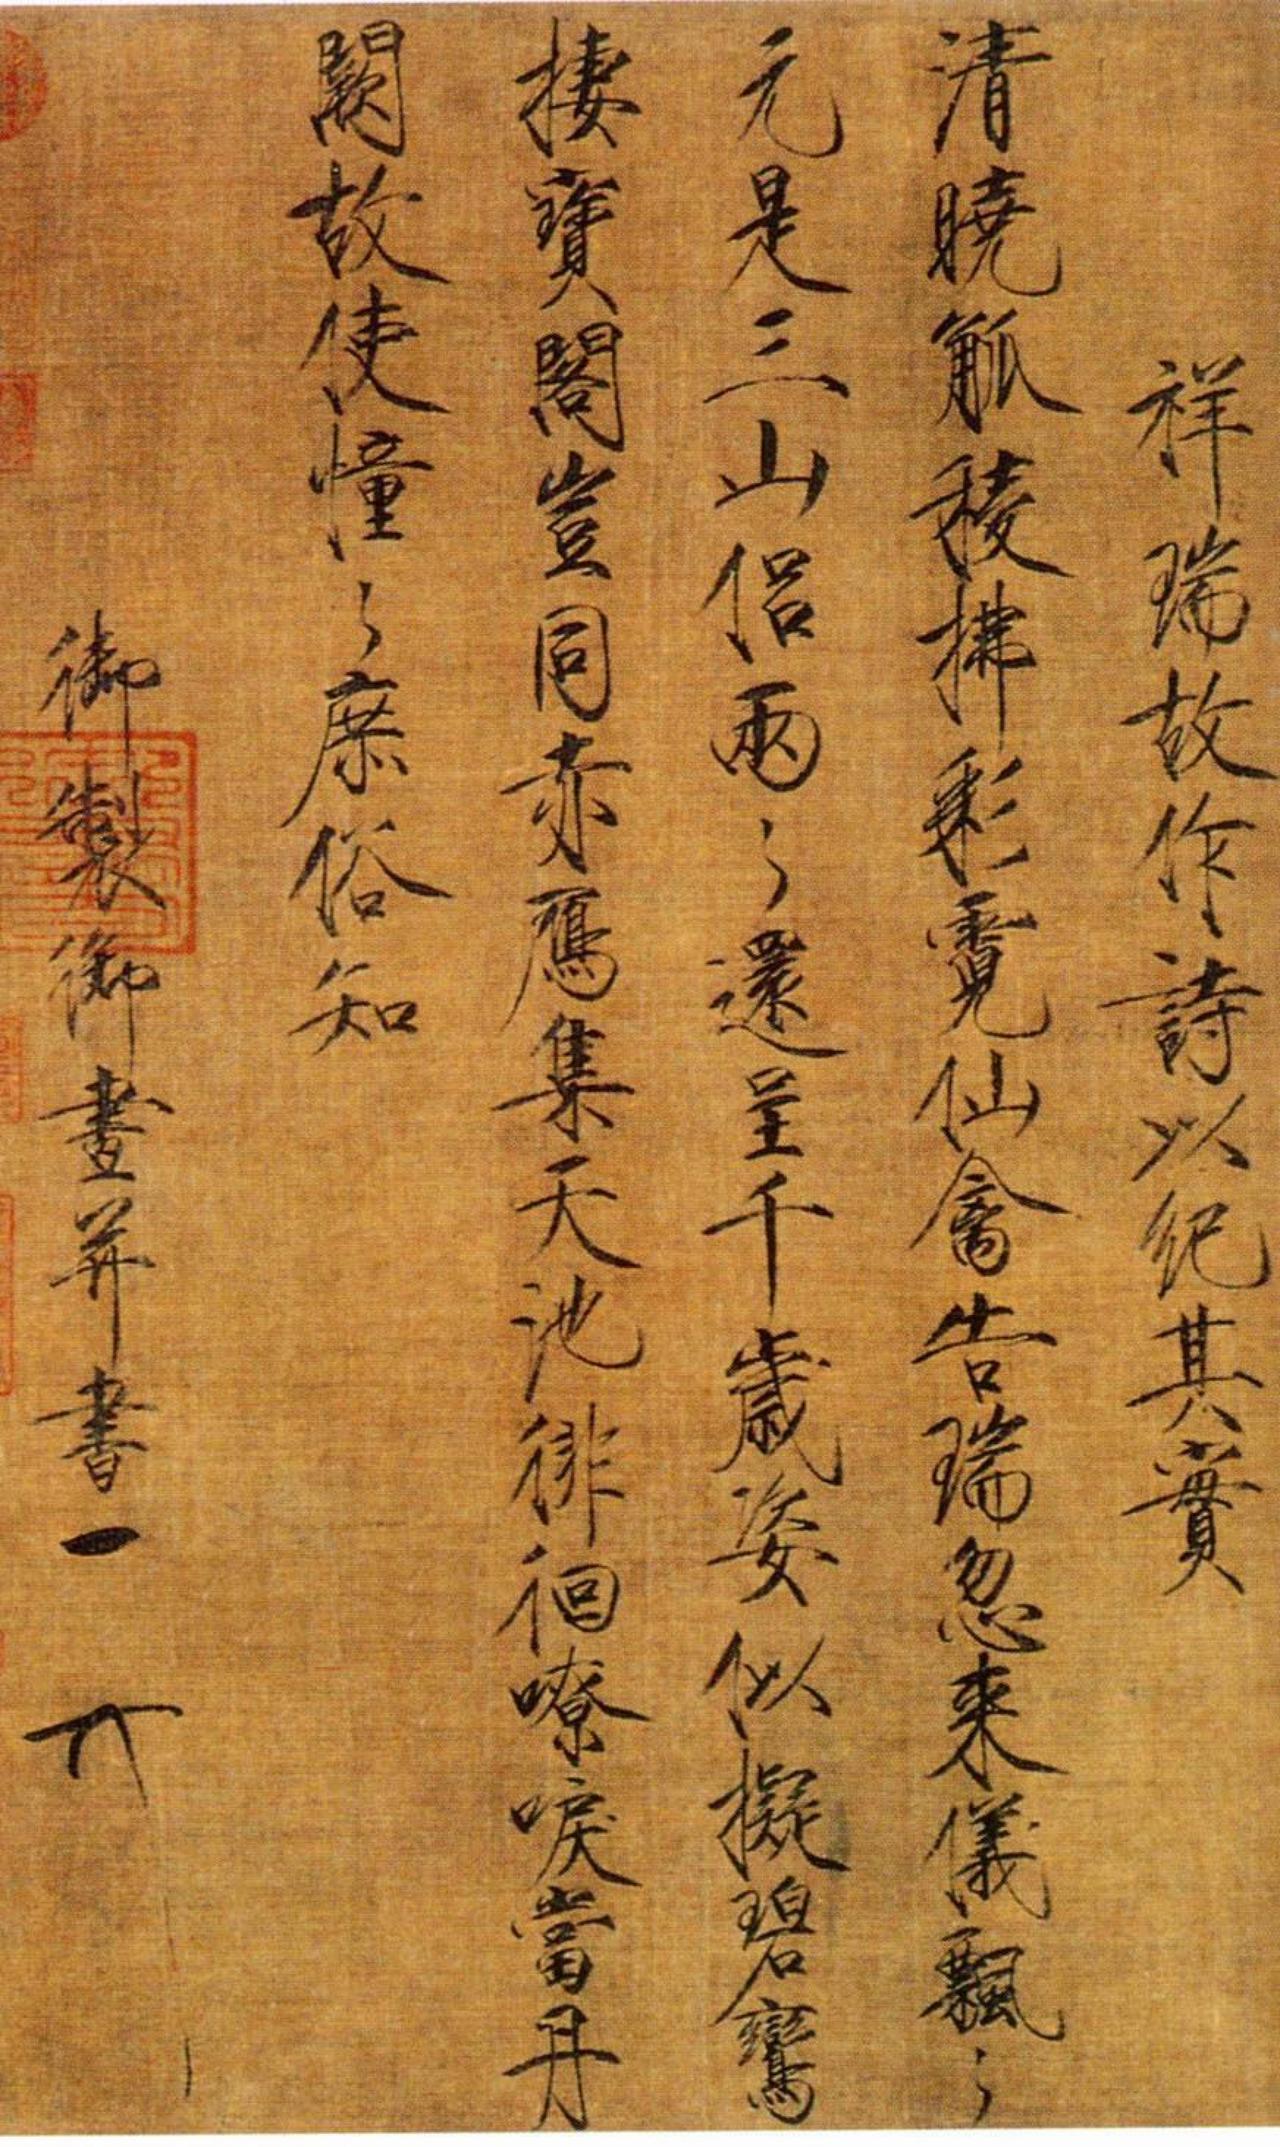 祥瑞故作詩以紀其實
清曉觚稜拂彩霓仙禽告瑞忽来儀飄〻
元是三山侣兩〻還呈千歲姿似擬碧鸞
棲寶閣豈同赤鴈集天池徘徊嘹唳當丹
闕故使憧〻庶俗知
御製御畫并書